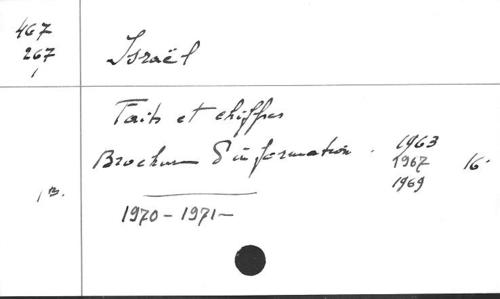 467
267
1
Israël
Faits et chiffres
Brochure d'information. 1963
1967 16°
1969
1 B.
1970-1971-